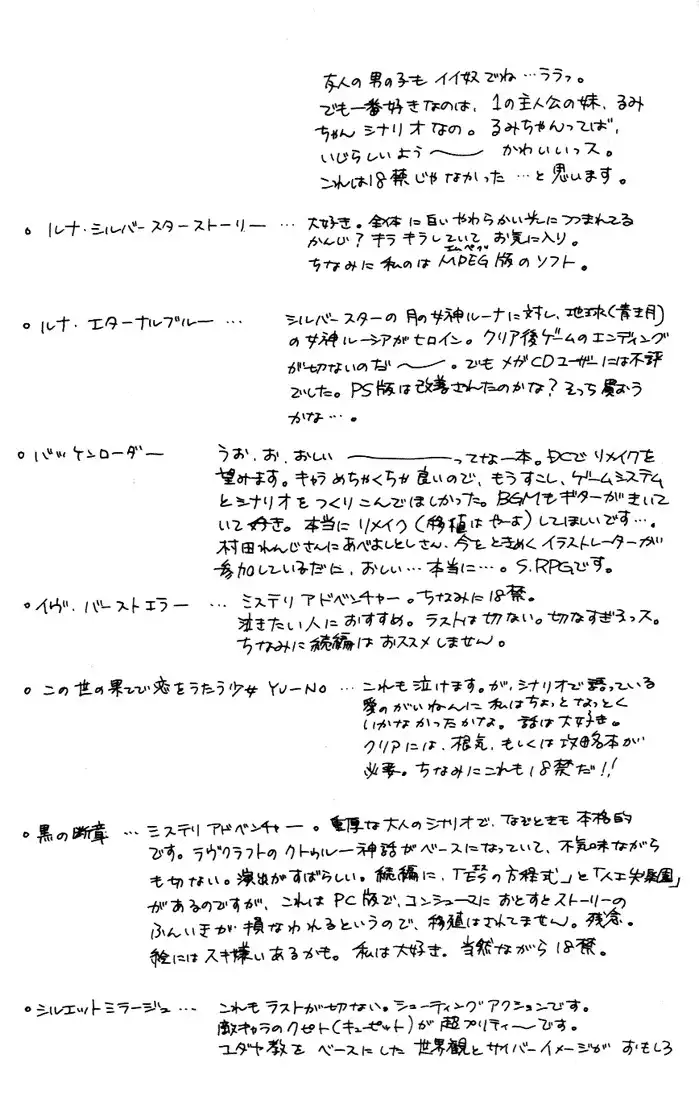 友人の男の子もイイ奴でね…ララっ。
でも一番好きなのは、1の主人公の妹、るみ
ちゃんシナリオなの。るみちゃんってば、
いじらしいよう〜 かわいいっス。
これは18禁じゃなかった…と思います。
○ ルナ・シルバースターストーリー … 大好き。全体に白いやわらかい光につつまれてる
かんじ?キラキラしていて、お気に入り。
ちなみに私のはMPEG版のソフト。
エムペグ
○ ルナ・エターナルブルー … シルバースターの月の女神ルーナに対し、地球(青き月)
の女神ルーシアがヒロイン。クリア後ゲームのエンディング
が切ないのだ〜。でもメガCDユーザーには不評
でした。PS版は改善されたのかな?そっち買おう
かな…。
○ バッケンローダー うお、お、おしい ―――ってな一本。DCでリメイクを
望みます。キャラめちゃくちゃ良いので、もうすこし、ゲームシステム
とシナリオをつくりこんでほしかった。BGMもギターがきいて
いて好き。本当にリメイク(移植はやーよ)してほしいです…。
村田れんじさんにあべよしとしさん、今をときめくイラストレーターが
参加しているだに、おしい…本当に…。S.RPGです。
○ イヴ・バーストエラー … ミステリアドベンチャー。ちなみに18禁。
泣きたい人におすすめ。ラストは切ない。切なすぎるっス。
ちなみに続編はおススメしません。
○ この世の果てで恋をうたう少女 YU-NO … これも泣けます。が、シナリオで語っている
愛のがいねんに私はちょっとなっとく
いかなかったかな。話は大好き。
クリアには、根気、もしくは攻略本が
必要。ちなみにこれも18禁だ!!
○ 黒の断章 … ミステリアドベンチャー。重厚な大人のシナリオで、なぞときも本格的
です。ラヴクラフトのクトゥルー神話がベースになっていて、不気味ながら
も切ない。演出がすばらしい。続編に、「ESの方程式」と「人工失楽園」
があるのですが、これはPC版で、コンシューマにおとすとストーリーの
ふんいきが損なわれるというので、移植はされてません。残念。
絵にはスキ嫌いあるかも。私は大好き。当然ながら18禁。
○ シルエットミラージュ … これもラストが切ない。シューティングアクションです。
敵キャラのクピト(キューピット)が超プリティーです。
ユダヤ教をベースにした世界観とサイバーイメージがおもしろ